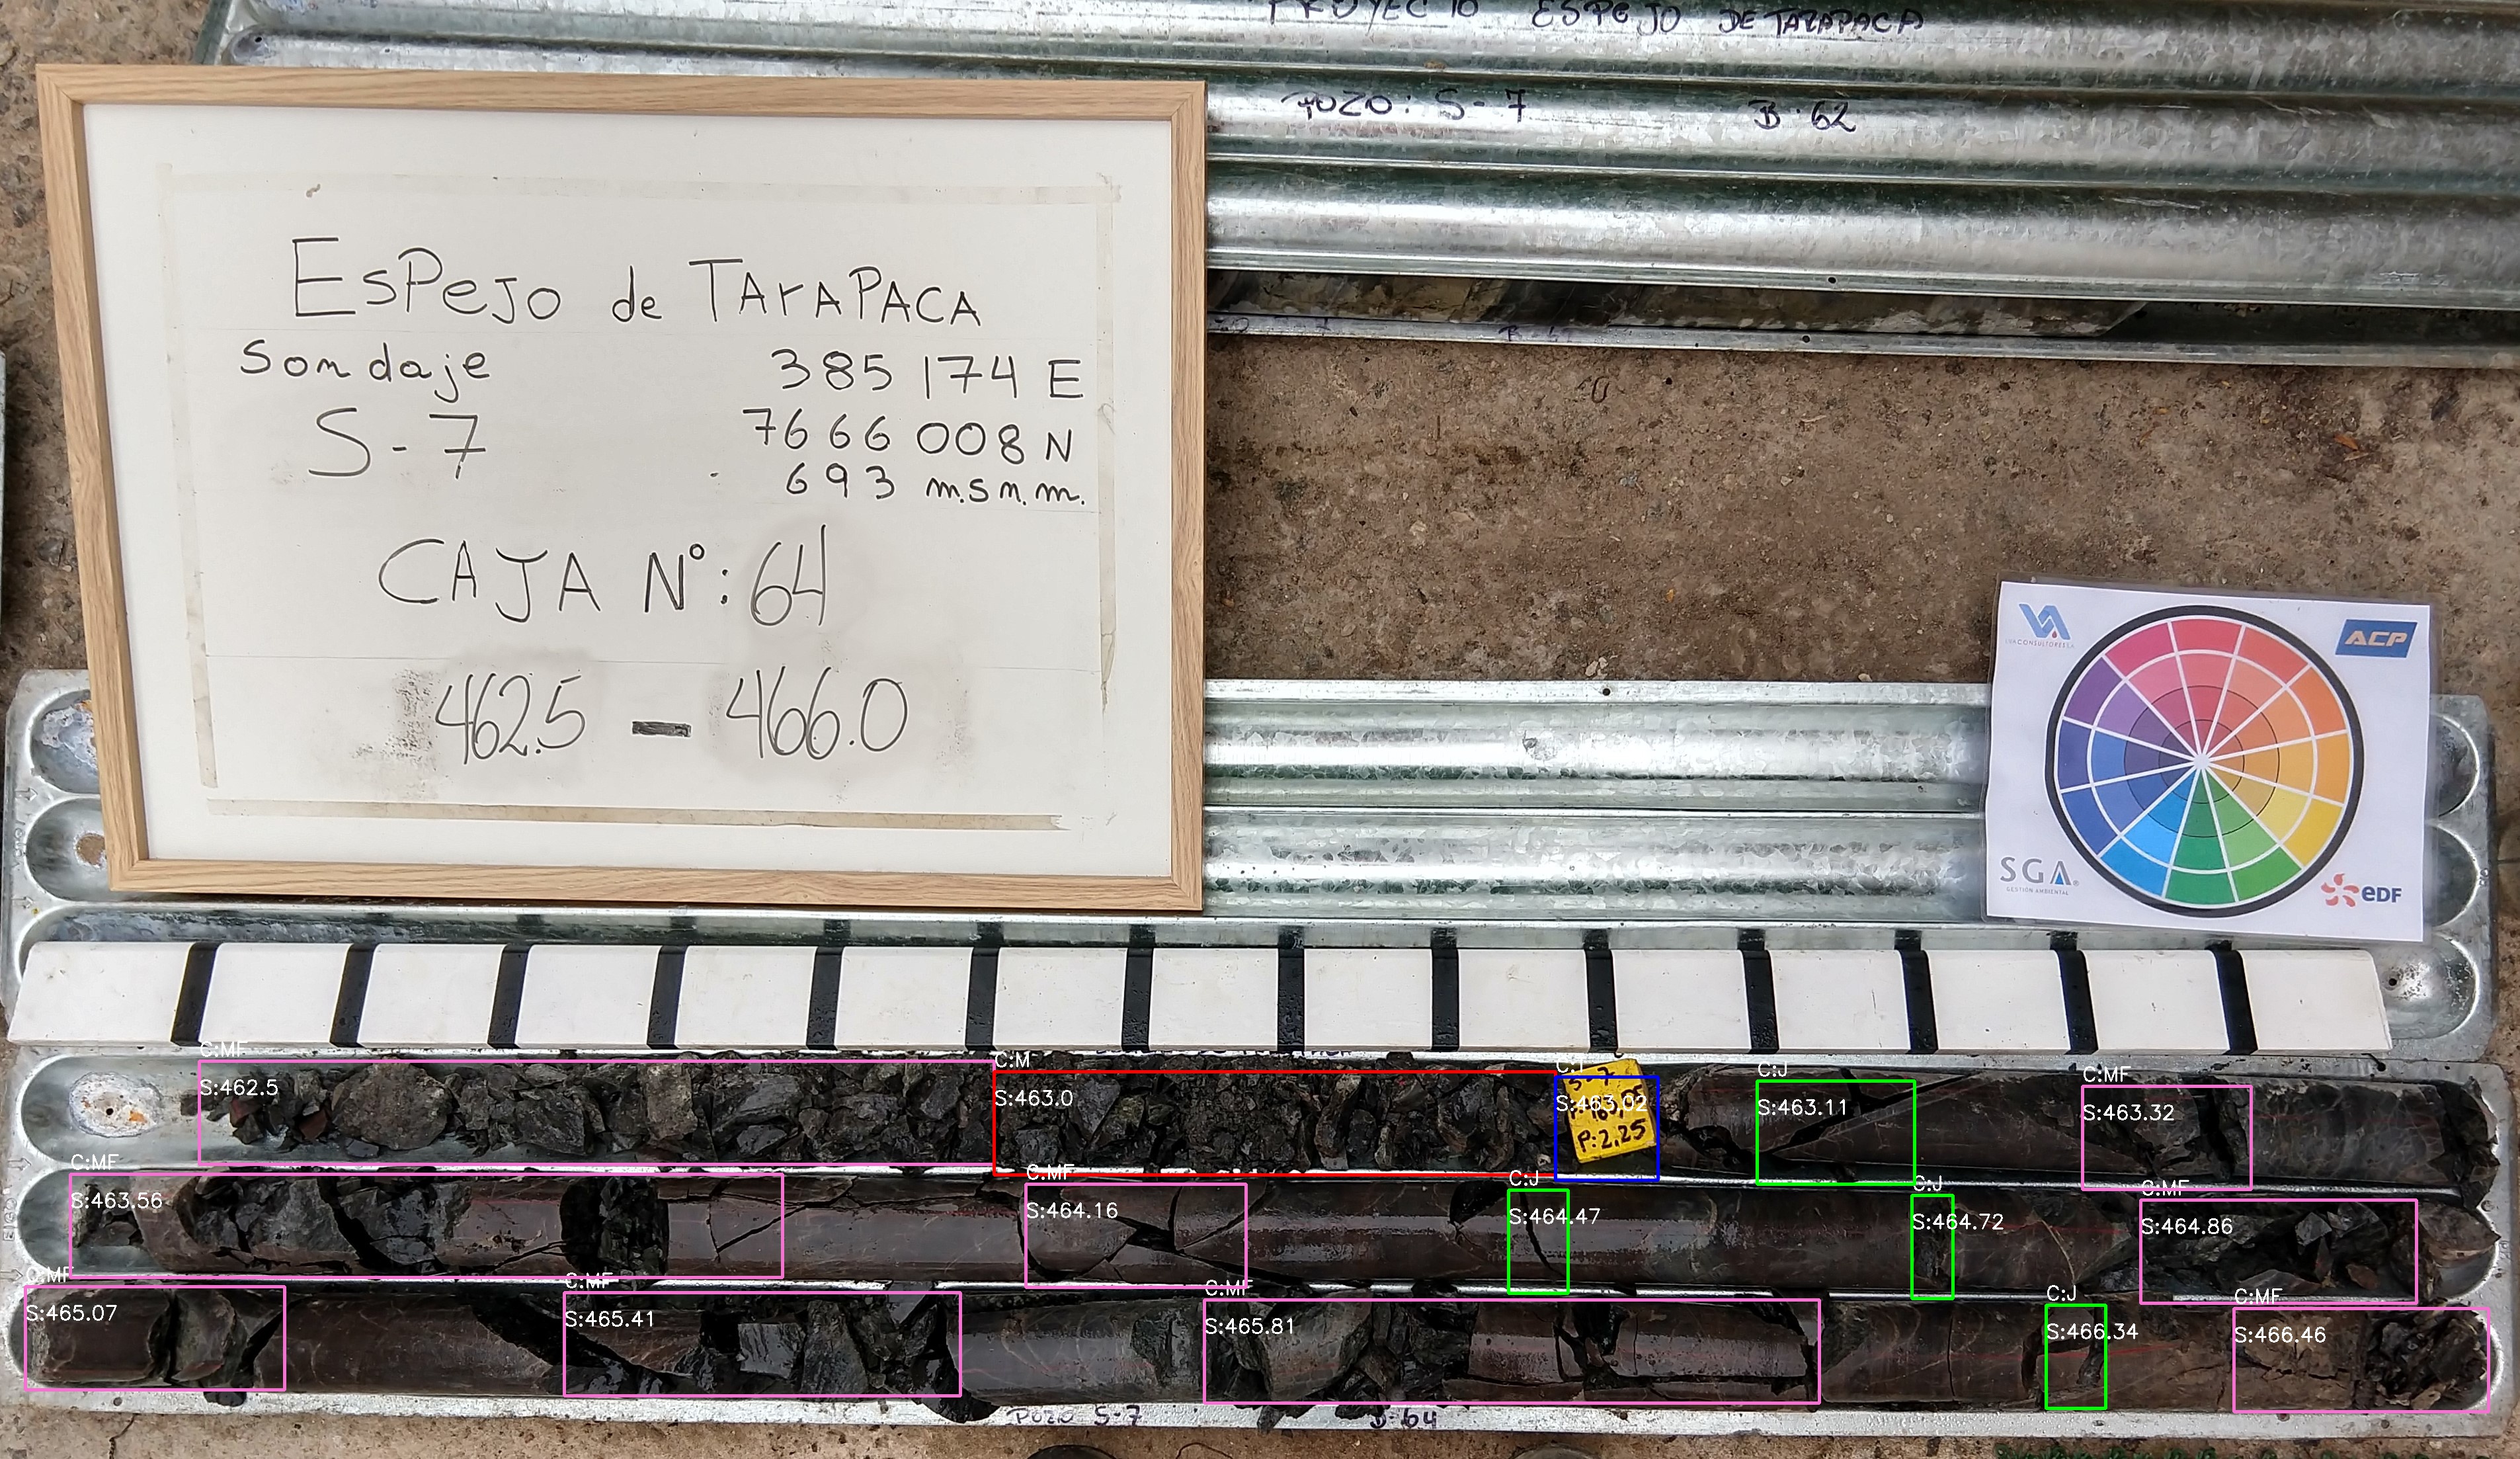 PROYECTO ESPEJO DE TARAPACA
POZO: S-7 B:62
ESPEJO de TARAPACA
Sondaje
385 174 E
S-7
7666 008 N
693 m.s.n.m.
CAJA N°: 64
462.5 - 466.0
VA
ACP
SGA
GESTIÓN AMBIENTAL
eDF
C:MF
S:462.5
C:M
S:463.0
S:463.02
P:2.25
C:J
S:463.11
C:MF
S:463.32
C:MF
S:463.56
C:MF
S:464.16
C:J
S:464.47
C:J
S:464.72
C:MF
S:464.86
C:MF
S:465.07
C:MF
S:465.41
C:MF
S:465.81
C:J
S:466.34
C:MF
S:466.46
POZO S-7 B:64